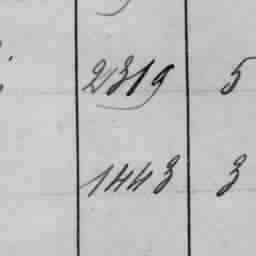 2319 5
1443 3